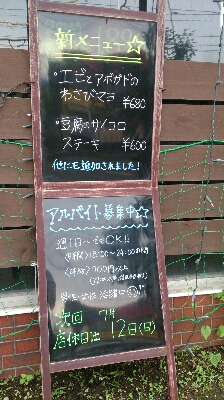 新メニュー☆
・エビとアボガドの
わさびマヨ
¥680
・豆腐のサイコロ
ステーキ ¥600
他にも追加されました!
アルバイト募集中☆
週1日〜OK!!
18:00〜24:00
次回 7月
店休日は 12日(日)